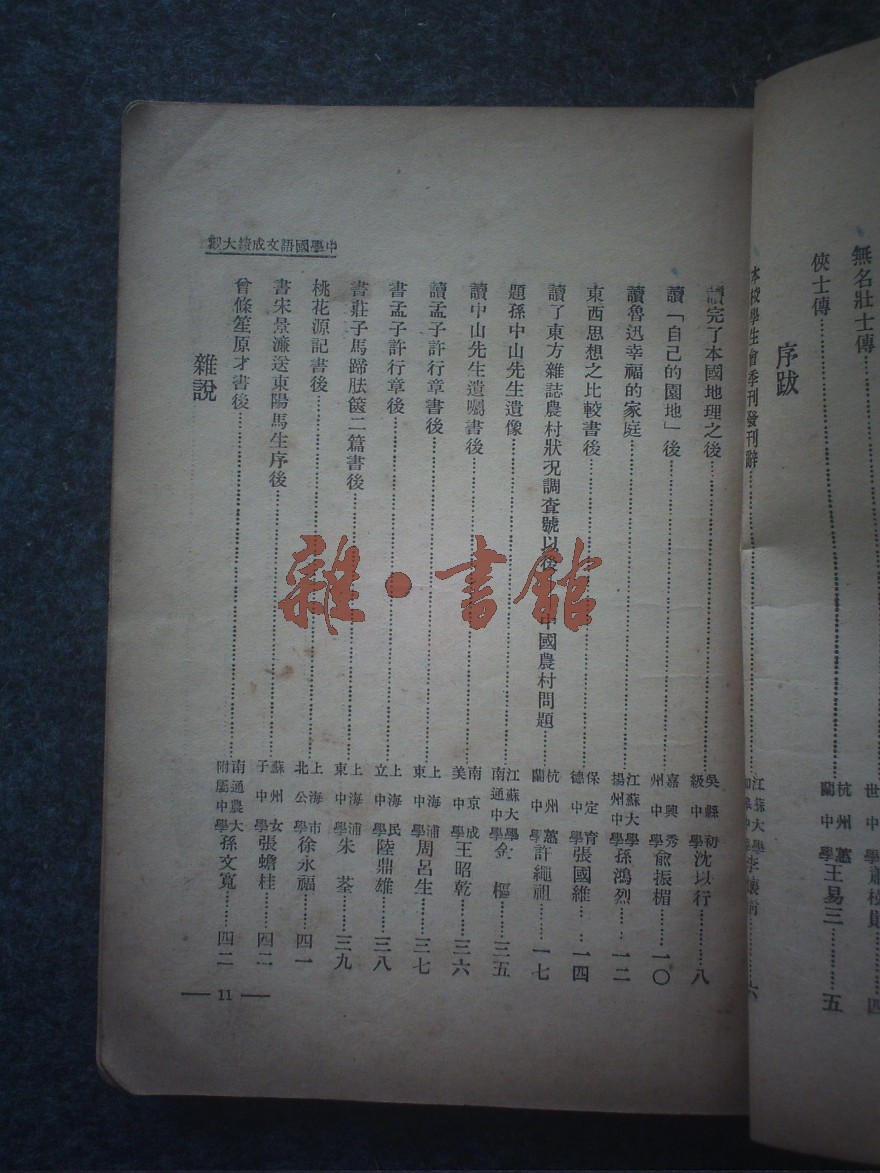 無名壯士傳 世 中學 四
俠士傳…………杭州蕙蘭中學王易三……五
序跋
本校學生會季刊發刊辭…………江蘇大學 李 六
讀完了本國地理之後…………吳縣初級中學沈以行……八
讀「自己的園地」後…………嘉興秀州中學俞振楣……一〇
讀魯迅幸福的家庭…………江蘇大學揚州中學孫鴻烈……一二
東西思想之比較書後…………保定育德中學張國維……一四
讀了東方雜誌農村狀况調查號以後 中國農村問題……杭州蕙蘭中學許繩祖……一七
題孫中山先生遺像…………江蘇大學南通中學金樞……三五
讀中山先生遺囑書後…………南京成美中學王昭乾……三六
讀孟子許行章書後…………上海浦東中學周呂生……三七
書孟子許行章後…………上海民立中學陸鼎雄……三八
書莊子馬蹄胠篋二篇書後…………上海浦東中學朱荃……三九
桃花源記書後…………上海市北公學徐永福……四一
書宋景濂送東陽馬生序後…………蘇州女子中學張蟾桂……四二
曾滌笙原才書後…………南通農大附屬中學孫文寬……四二
雜說
中學國語文成績大觀
— 11 —
雜·書館